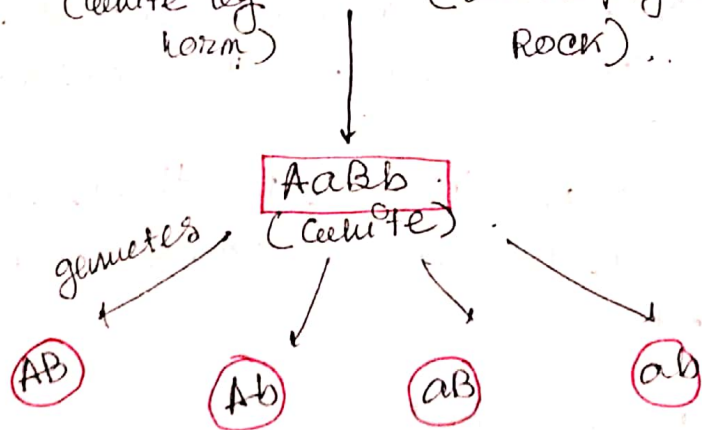 (white leg
horn)
ROCK)..
AaBb
(white)
gametes
AB
Ab
aB
ab